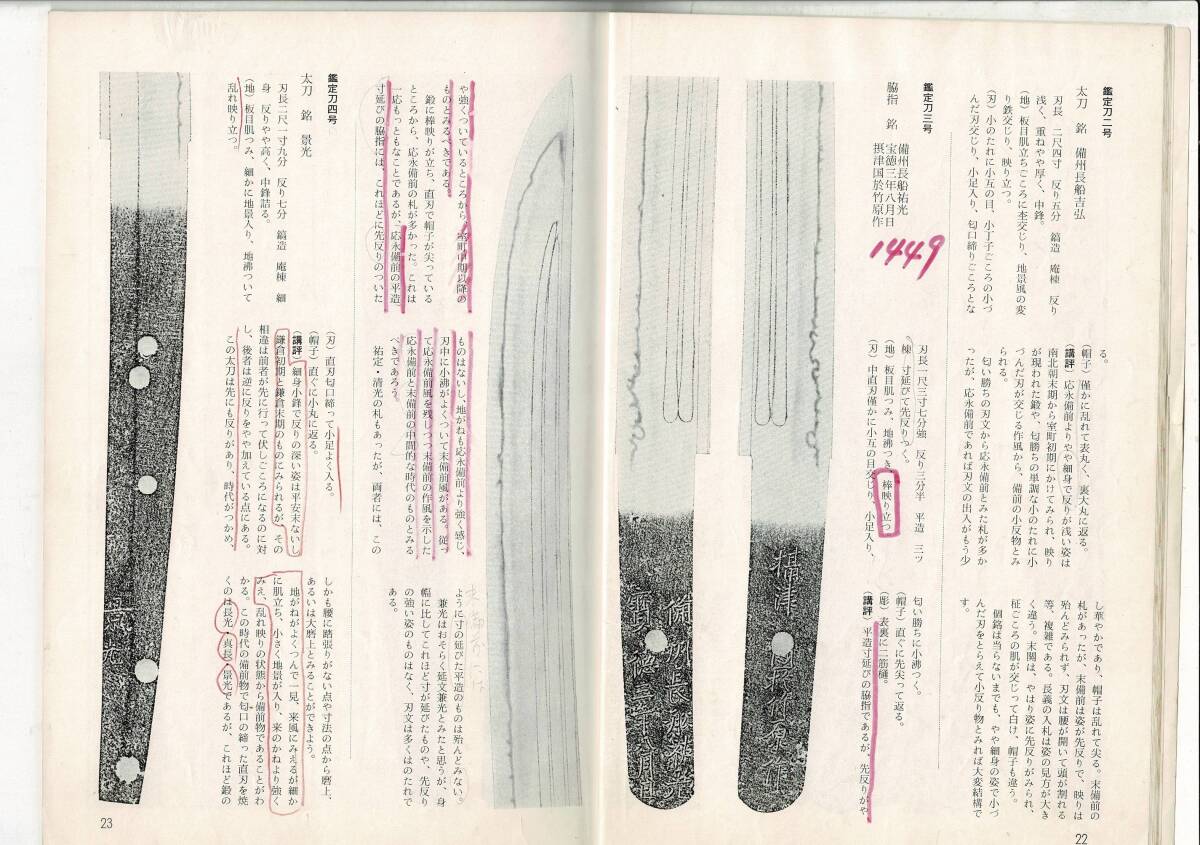 鑑定刀二号
太刀 銘 備州長船吉弘
刃長 二尺四寸 反り五分 鎬造 庵棟 反り
浅く、重ねやや厚く、中鋒。
(地)板目肌立ちごころに杢交じり、地景風の変
り鉄交じり、映り立つ。
(刃)小のたれに小互の目、小丁子ごころの小づ
んだ刃交じり、小足入り、匂口締りごころとな
る。
(帽子)僅かに乱れて表丸く、裏大丸に返る。
(講評)応永備前よりやや細身で反りが浅い姿は
南北朝末期から室町初期にかけてみられ、映り
が現われた鍛や、匂勝ちの単調な小のたれに小
づんだ刃が交じる作風から、備前の小反物とみ
られる。
匂い勝ちの刃文から応永備前とみた札が多か
ったが、応永備前であれば刃文の出入がもう少
し華やかであり、帽子は乱れて尖る。末備前の
札があったが、末備前は姿が先反りで、映りは
殆んどみられず、刃文は腰が開いて頭が割れる
等、複雑である。長義の入札は姿の見方が大き
く違う。末関は、やはり姿に先反りがみられ、
柾ごころの肌が交じって白け、帽子も違う。
個銘は当らないまでも、やや細身の姿で小づ
んだ刃をとらえて小反り物とみれば大変結構で
す。
鑑定刀三号
脇指 銘 備州長船祐光
宝徳三年八月日
摂津国於竹原作
1449
刃長一尺三寸七分強 反り三分半 平造 三ツ
棟 寸延びて先反りつく。
(地)板目肌つみ、地沸つき棒映り立つ
(刃)中直刃僅かに小互の目交じり、小足入り、
匂い勝ちに小沸つく。
(帽子)直ぐに先尖って返る。
(彫)表裏に二筋樋。
(講評)平造寸延びの脇指であるが、先反りがや
や強くついているところから、室町中期以降の
ものとみるべきである。
鍛に棒映りが立ち、直刃で帽子が尖っている
ところから、応永備前の札が多かった。これは
一応もっともなことであるが、応永備前の平造、
寸延びの脇指には、これほどに先反りのついた
ものはないし、地がねも応永備前より強く感じ、
刃中に小沸がよくついて末備前風がある。従っ
て応永備前風を残しつつ末備前の作風を示した
応永備前と末備前の中間的な時代のものとみる
べきであろう。
祐定・清光の札もあったが、両者には、この
ように寸の延びた平造のものは殆んどみない。
兼光はおそらく延文兼光とみたと思うが、身
幅に比してこれほど寸が延びたものや、先反り
の強い姿のものはなく、刃文は多くはのたれで
ある。
鑑定刀四号
太刀 銘 景光
刃長二尺一寸九分 反り七分 鎬造 庵棟 細
身 反りやや高く、中鋒詰る。
(地)板目肌つみ、細かに地景入り、地沸ついて
乱れ映り立つ。
(刃)直刃匂口締って小足よく入る。
(帽子)直ぐに小丸に返る。
(講評)細身小鋒で反りの深い姿は平安末ないし
鎌倉初期と鎌倉末期のものにみられるが、その
相違は前者が先に行って伏しごころになるのに対
し、後者は逆に反りをやや加えている点にある。
この太刀は先にも反りがあり、時代がつかめ、
しかも腰に踏張りがない点や寸法の点から磨上、
あるいは大磨上とみることができよう。
地がねがよくつんで一見、来風にみえるが細か
に肌立ち、小さく地景が入り、来のかねより強く
みえ、乱れ映りの状態から備前物であることがわ
かる。この時代の備前物で匂口の締った直刃を焼
くのは長光・真長・景光であるが、これほど鍛の
23
22